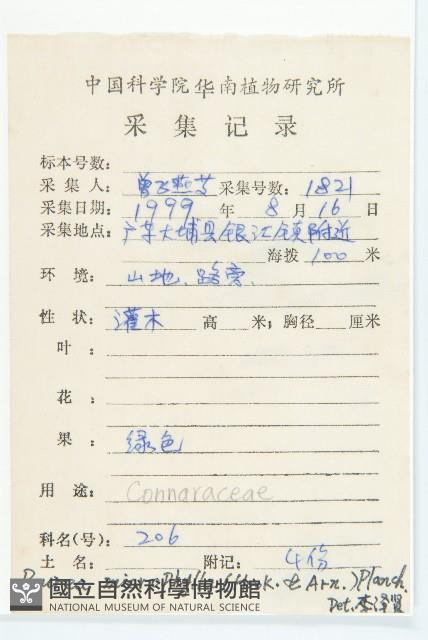 中国科学院华南植物研究所
采集记录
标本号数:
采集人: 曾飞燕等 采集号数: 1821
采集日期: 1999 年 8 月 16 日
采集地点: 广东大埔县银江镇附近
海拨 100 米
环境: 山地、路旁、
性状: 灌木 高 米; 胸径 厘米
叶:
花:
果: 绿色
用途: Connaraceae
科名(号): 206
土名: 附记: 4份
(Hook. & Arn.) Planch.
Det. 李泽贤
國立自然科學博物館
NATIONAL MUSEUM OF NATURAL SCIENCE